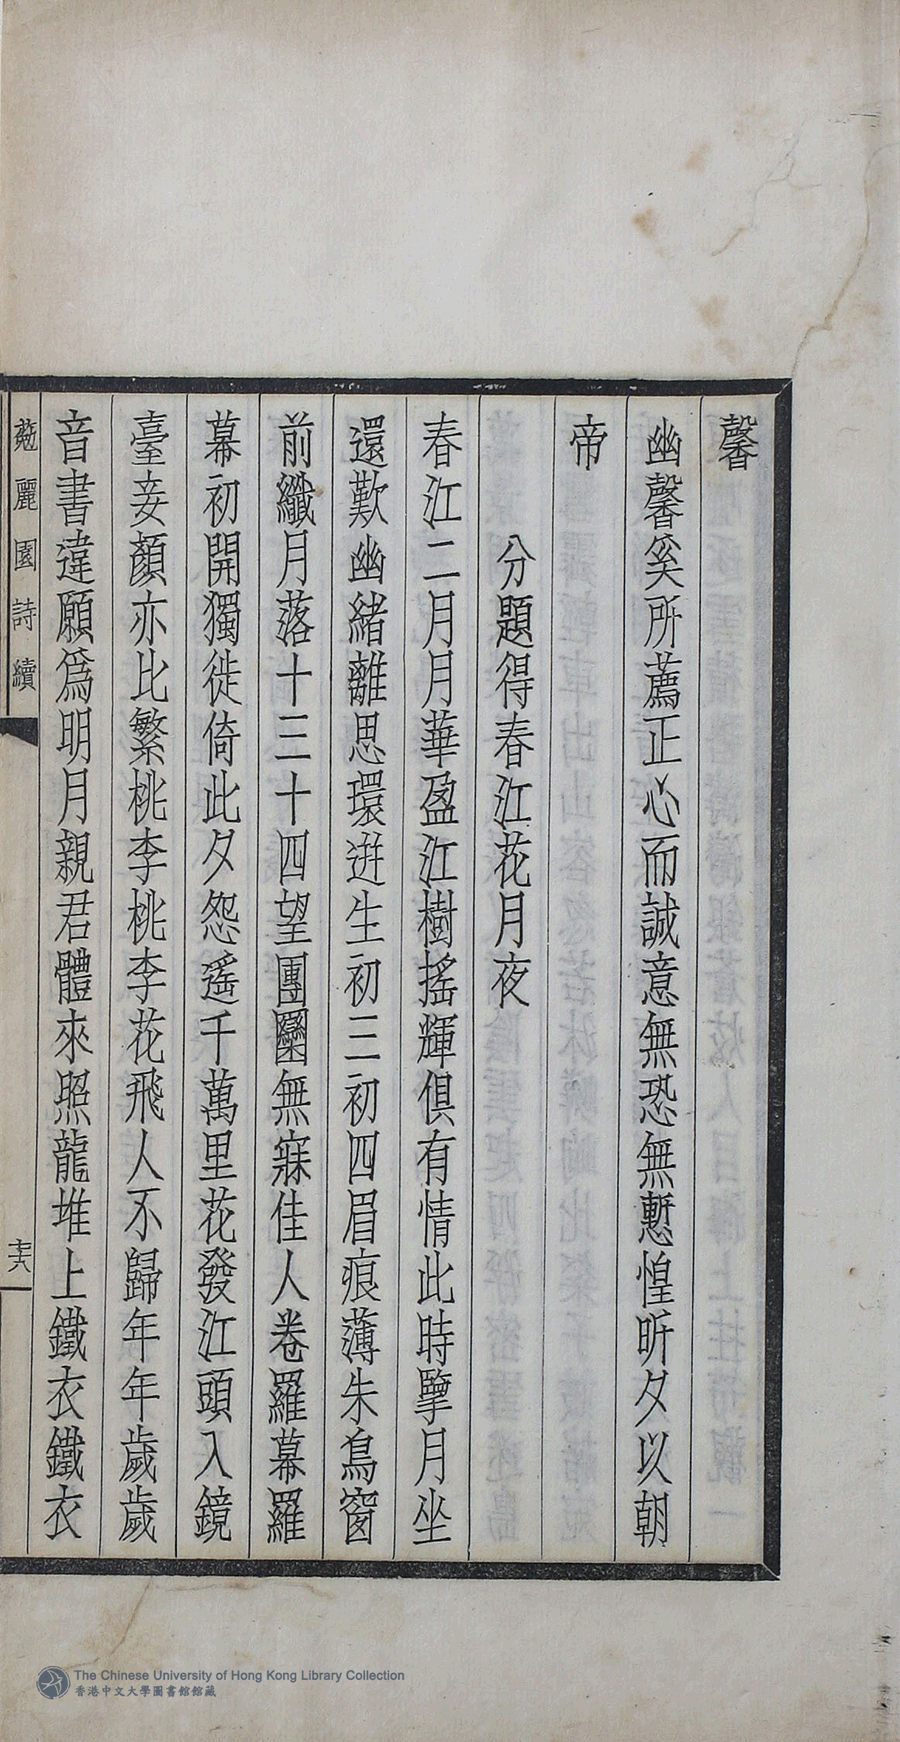 馨
幽馨奚所薦正心而誠意無恐無慙惶昕夕以朝
帝
分題得春江花月夜
春江二月月華盈江樹搖輝俱有情此時擥月坐
還歎幽緒離思環迸生初三初四眉痕薄朱鳥窗
前纖月落十三十四望團圞無寐佳人卷羅幕羅
幕初開獨徙倚此夕怨遙千萬里花發江頭入鏡
臺妾顏亦比繁桃李桃李花飛人不歸年年歲歲
音書違願爲明月親君體來照龍堆上鐵衣鐵衣
麗園詩續
The Chinese University of Hong Kong Library Collection
香港中文大學圖書館館藏